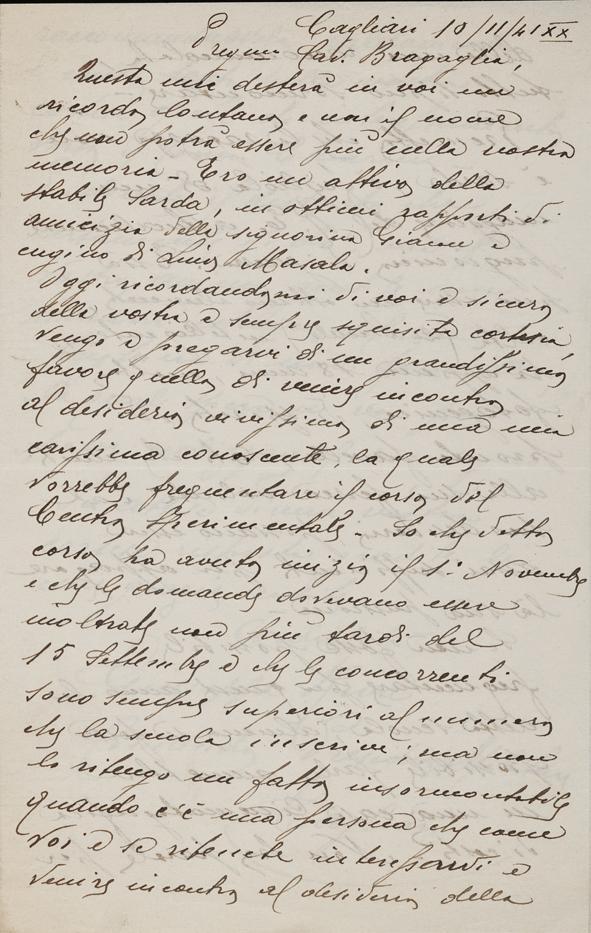 Cagliari 10/11/41 XX
Pregmo Cav. Bragaglia,
Questa mia desterà in voi un
ricordo lontano e non il nome
che non potrà essere più nella vostra
memoria - Ero un attivo della
stabile Sarda, in ottimi rapporti di
amicizia della signorina Gianna e
cugino di Masala.
Oggi ricordandomi di voi e sicuro
della vostra e sempre squisita cortesia,
vengo a pregarvi di un grandissimo
favore quello di venire incontro
al desiderio vivissimo di una mia
carissima conoscente, la quale
vorrebbe frequentare il corso del
Centro Sperimentale - So che detto
corso ha avuto inizio il 1° Novembre
e che le domande dovevano essere
inoltrate non più tardi del
15 Settembre e che le concorrenti
sono sempre superiori al numero
che la scuola inscrive; ma non
lo ritengo un fatto insormontabile
quando c'è una persona che come
voi e se ritenete interessarvi e
venire incontro al desiderio della